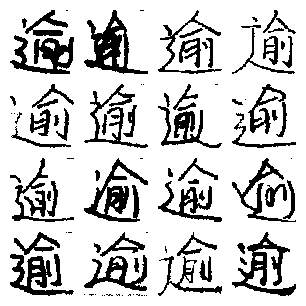 逾逾逾逾
逾逾逾逾
逾逾逾逾
逾逾逾逾